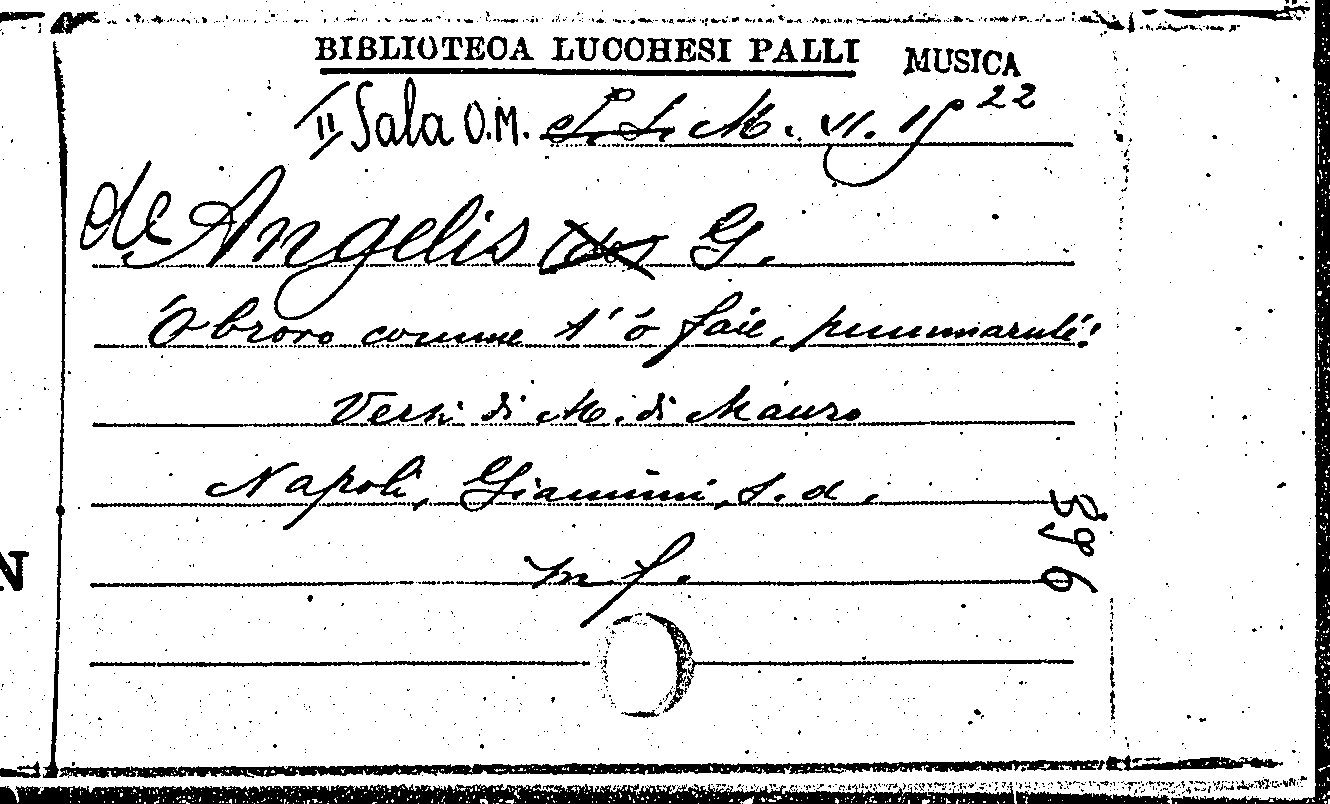 BIBLIOTECA LUCCHESI PALLI MUSICA
II Sala O.M. S. L. M. VI. 15 22
de Angelis (de) G.
'O broro comme t' 'o faie, pummarulè!
Versi di M. di Mauro
Napoli, Giannini, s. d.
m f.
896
N